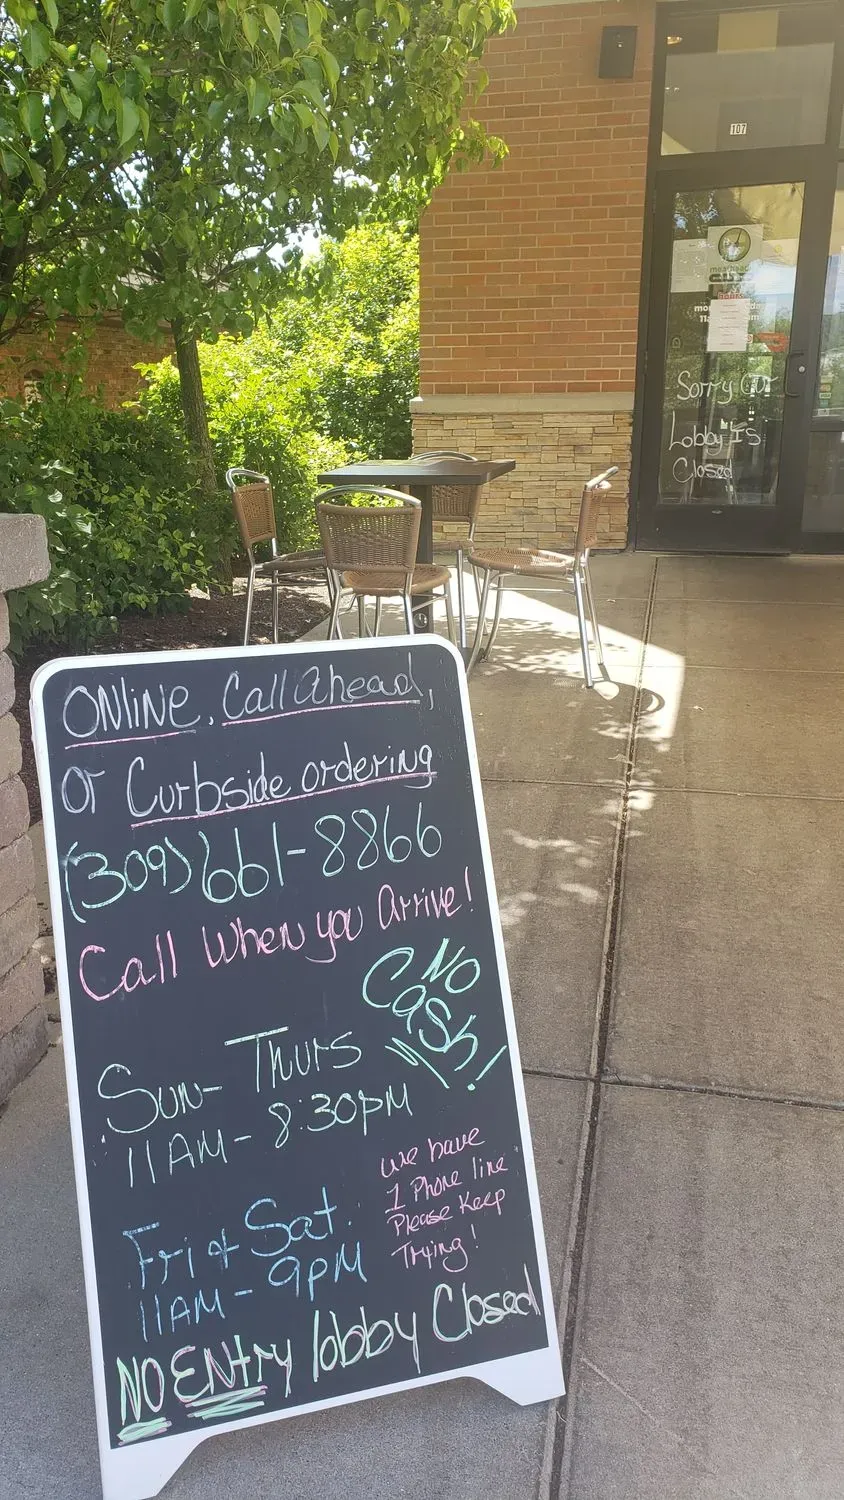 107
hours
Sorry Our
Lobby Is
Closed
ONLINE, Call Ahead,
or Curbside ordering
(309) 661-8866
Call When you Arrive!
NO
Cash!
Sun- Thurs
11AM- 8:30PM
we have
1 Phone line
Please Keep
Trying!
Fri & Sat.
11AM- 9PM
NO ENtry lobby Closed